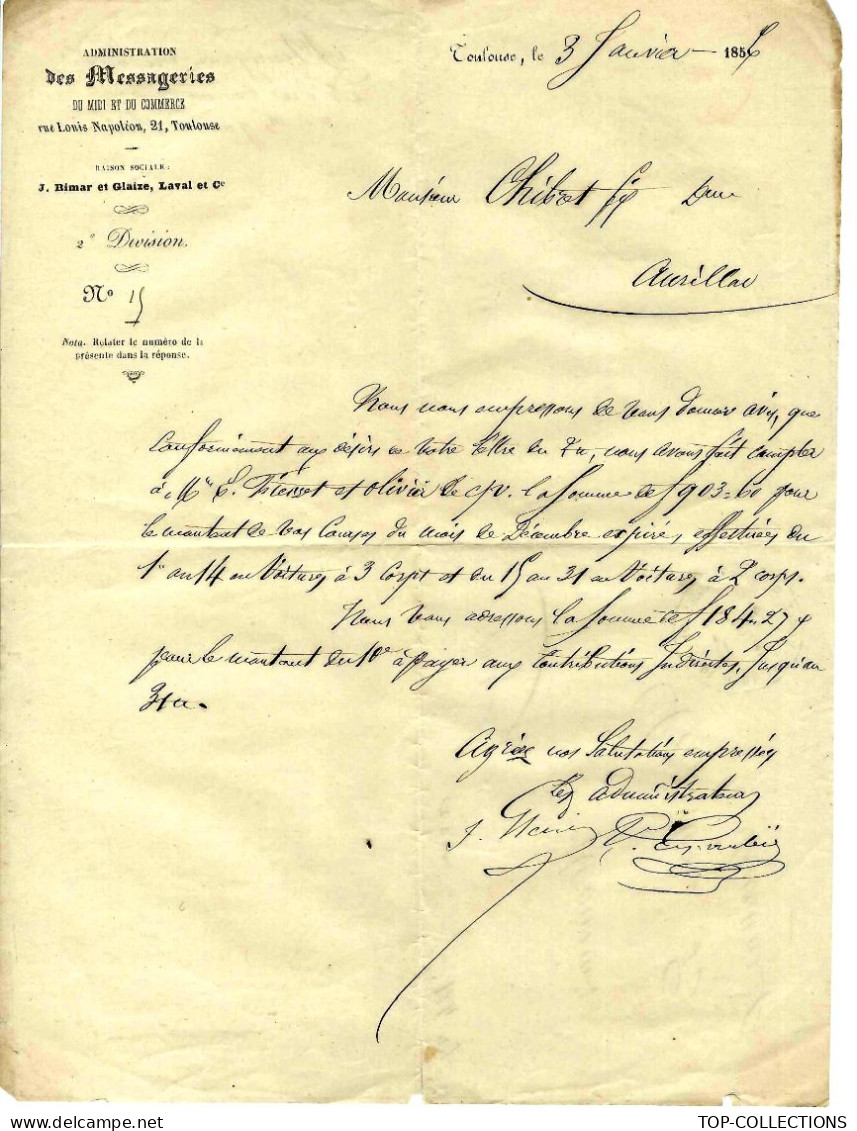 ADMINISTRATION
des Messageries
DU MIDI ET DU COMMERCE
rue Louis Napoléon, 21, Toulouse
RAISON SOCIALE :
J. Bimar et Glaize, Laval et Ce
2e Division.
No 15
Nota. Relater le numéro de la
présente dans la réponse.
Toulouse, le 3 Janvier 185
Monsieur Chibret
Aurillac
Nous nous empressons de vous donner avis, que
conformément aux désirs de votre lettre du, nous avons fait compter
à Mrs et Olivier de c/v. la Somme de f 903=60 pour
le montant de vos Courses du mois de Décembre expiré, effectuées du
1er au 14 en Voitures à 3 corps et du 15 au 31 en Voitures à 2 corps.
Nous vous adressons la Somme de f 184.27
pour le montant du 10e à payer aux Contributions Indirectes, Jusqu'au
31
Agréez nos Salutations empressées
Les administrateurs
TOP-COLLECTIONS